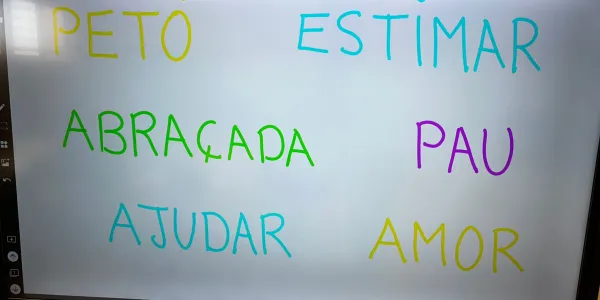 PETO ESTIMAR
ABRAÇADA PAU
AJUDAR AMOR